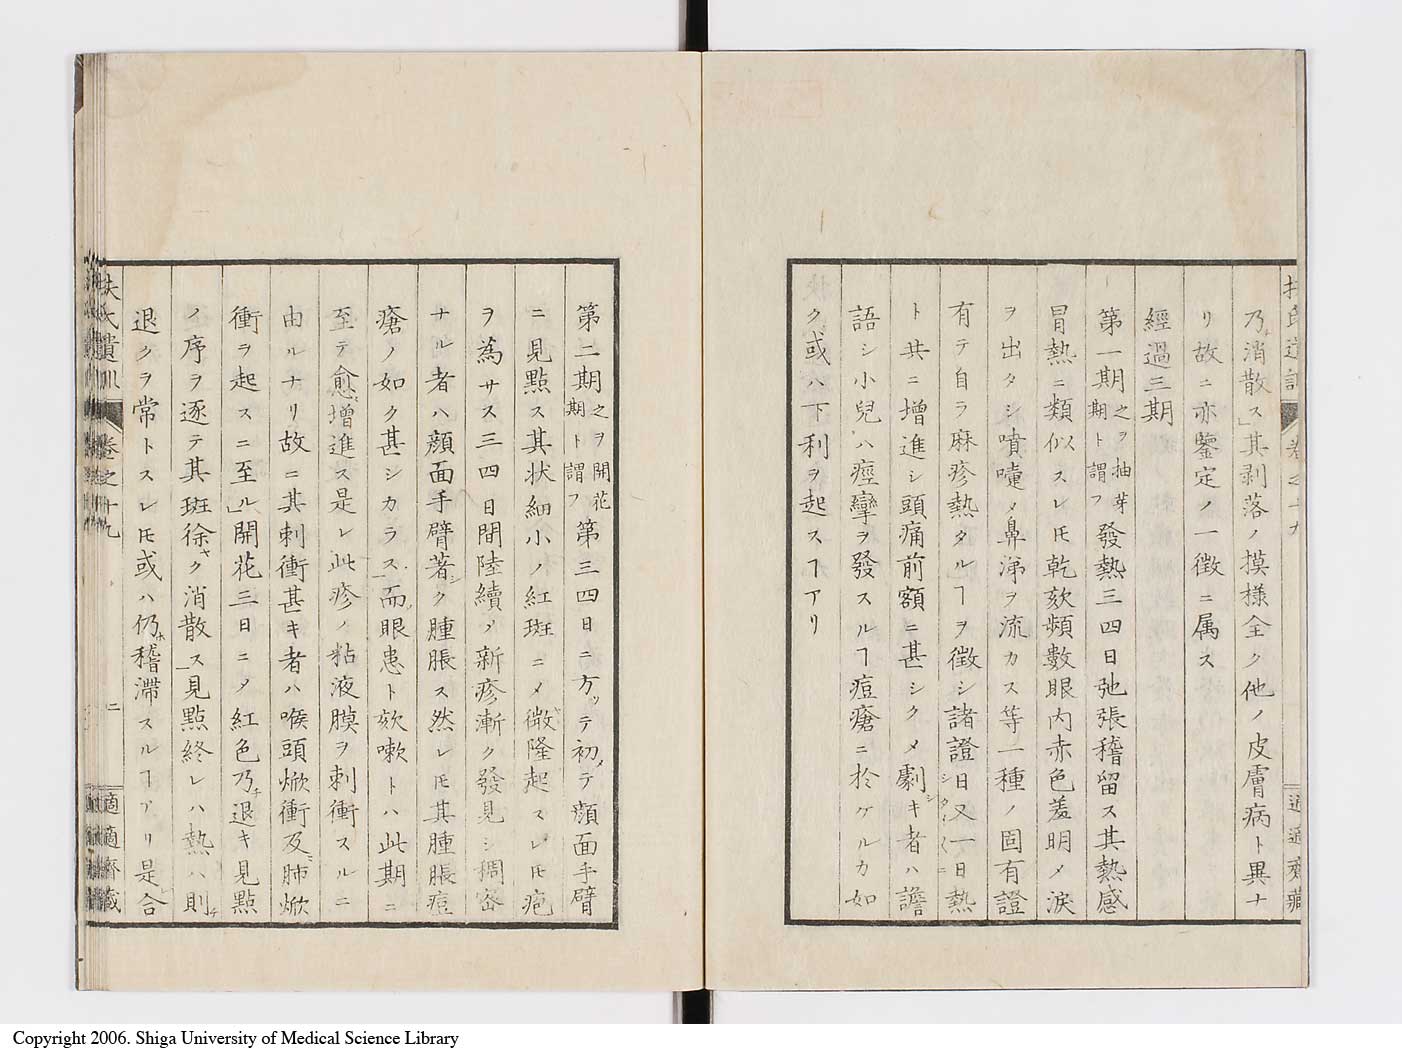 乃チ消散ス」其剥落ノ摸様全ク他ノ皮膚病ト異ナ
リ故ニ亦鑒定ノ一徴ニ属ス
經過三期
第一期之ヲ抽芽期ト謂フ發熱三四日弛張稽留ス其熱感
冒熱ニ類似スレ𪜈乾欬頻數眼内赤色羞明〆淚
ヲ出タシ噴嚏〆鼻涕ヲ流カス等一種ノ固有證
有テ自ラ麻疹熱タルヿヲ徴シ諸證日又一日熱
ト共ニ增進シ頭痛前額ニ甚シク〆劇シキ者ハ譫
語シ小兒ハ痙攣ヲ發スルヿ痘瘡ニ於ケルカ如
ク或ハ下利ヲ起スヿアリ
第二期之ヲ開花期ト謂フ第三四日ニ方ッテ初メテ顔面手臂
ニ見點ス其状細小ノ紅斑ニ〆微隆起スレ𪜈疱
ヲ為サス三四日間陸續〆新疹漸ク發見シ稠密
ナル者ハ顔面手臂著シク腫脹ス然レ𪜈其腫脹痘
瘡ノ如ク甚シカラス」而眼患ト欬嗽トハ此期ニ
至テ愈増進ス是レ此疹ノ粘液膜ヲ刺衝スルニ
由ルナリ故ニ其刺衝甚キ者ハ喉頭焮衝及ヒ肺焮
衝ヲ起スニ至ル」開花三日ニ〆紅色乃チ退キ見點
ノ序ヲ逐テ其斑徐ヤク消散ス」見點終レハ熱ハ則チ
退クヲ常トスレ𪜈或ハ仍ホ稽滯スルヿアリ是レ合
扶氏遺訓 卷之十九 二 適適齋藏